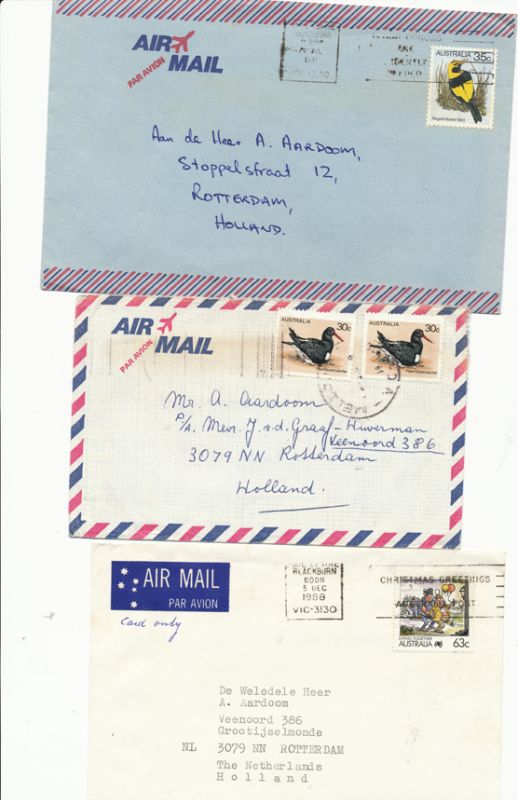 AIR
MAIL
PAR AVION
AUSTRALIA 35c
Regent Bower Bird
Aan de Heer A. AARDOOM,
Stoppelstraat 12,
ROTTERDAM,
HOLLAND.
AIR
MAIL
PAR AVION
AUSTRALIA 30c
AUSTRALIA 30c
Mr. A. Aardoom
P/A. Mevr. J. v. d. Graaf-Huverman
Veenoord 386
3079 NN Rotterdam
Holland.
AIR MAIL
PAR AVION
Card only
BLACKBURN
NOON
5 DEC
1988
VIC-3130
CHRISTMAS GREETINGS
POST
LIVING TOGETHER
AUSTRALIA 63c
De Weledele Heer
A. Aardoom
Veenoord 386
Grootijselmonde
NL 3079 NN ROTTERDAM
The Netherlands
Holland